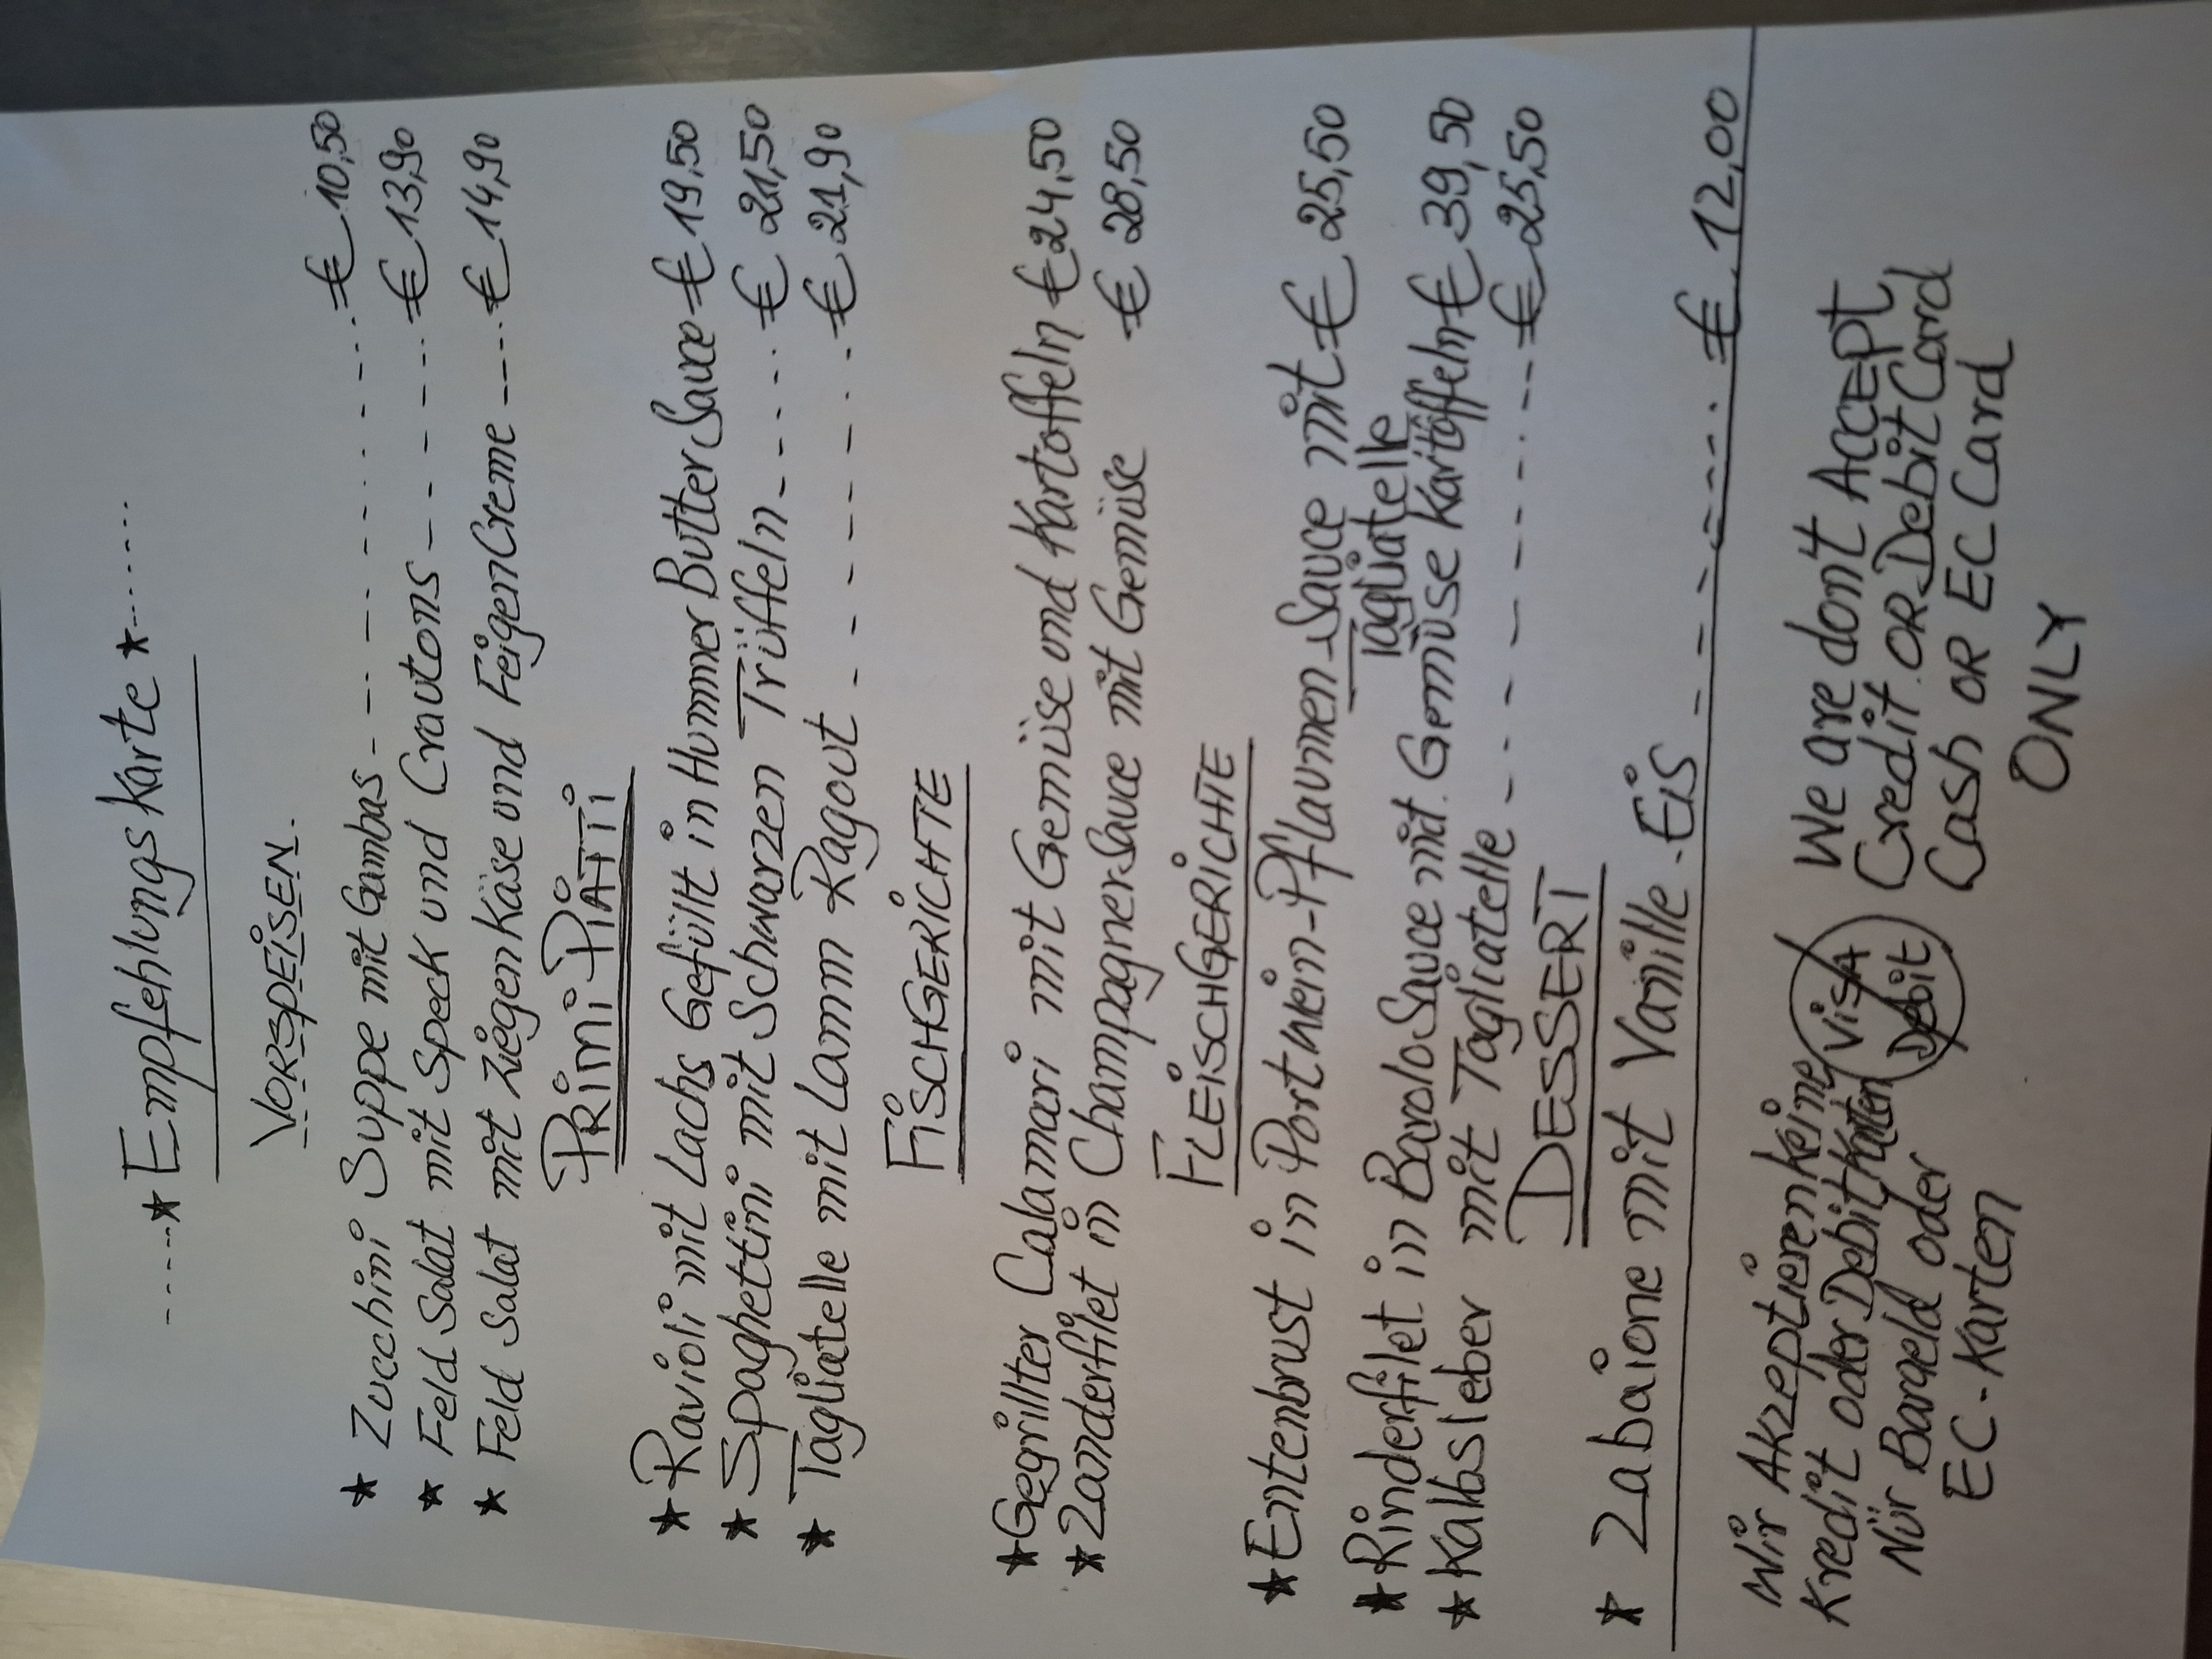 -----★ Empfehlungskarte ★-------
VORSPEISEN.
★ Zucchini Suppe mit Gambas - -- -- --- - - --. € 10,50
★ Feld Salat mit Speck und Crautons - - - - - --. € 13,90
★ Feld Salat mit Ziegen Käse und Feigen Creme ---. € 14,90
PRiMi PiATTi
★ Ravioli mit Lachs Gefüllt in Hummer Butter Sauce € 19,50
★ Spaghettini mit Schwarzen Trüffeln - - - -. € 21,50
★ Tagliatelle mit Lamm Ragout - - - -- - . - € 21,90
FiSCHGERiCHTE
★ Gegrillter Calamari mit Gemüse und Kartoffeln € 24,50
★ Zanderfilet in Champagner Sauce mit Gemüse € 28,50
FLEiSCHGERiCHTE
★ Entenbrust in Portwein-Pflaumen-Sauce mit € 25,50
Tagliatelle
★ Rinderfilet in Barolo Sauce mit Gemüse Kartoffeln € 39,50
★ Kalbsleber mit Tagliatelle - -- - - ---.-- € 25,50
DESSERT
★ Zabaione mit Vanille-Eis - - - ----. € 12,00
Wir Akzeptieren keine
Kredit oder Debitkarten
Nür Bargeld oder
EC-Karten
ViSA
Debit
We are don't ACCEPT
Credit OR Debit Card
Cash OR EC Card
ONLY